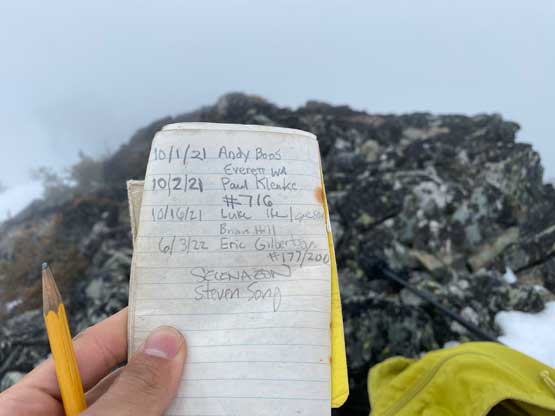 10/1/21 Andy Boos
Everett WA
10/2/21 Paul Klenke
#716
10/16/21 Luke
Brian Hill
6/3/22 Eric Gilbertson
#177/200
Steven Song